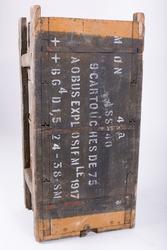 9 CARTOUCHES DE 75
A OBUS EXPLOSIF MLE 1917
++BG4D1,5 24-38-SM